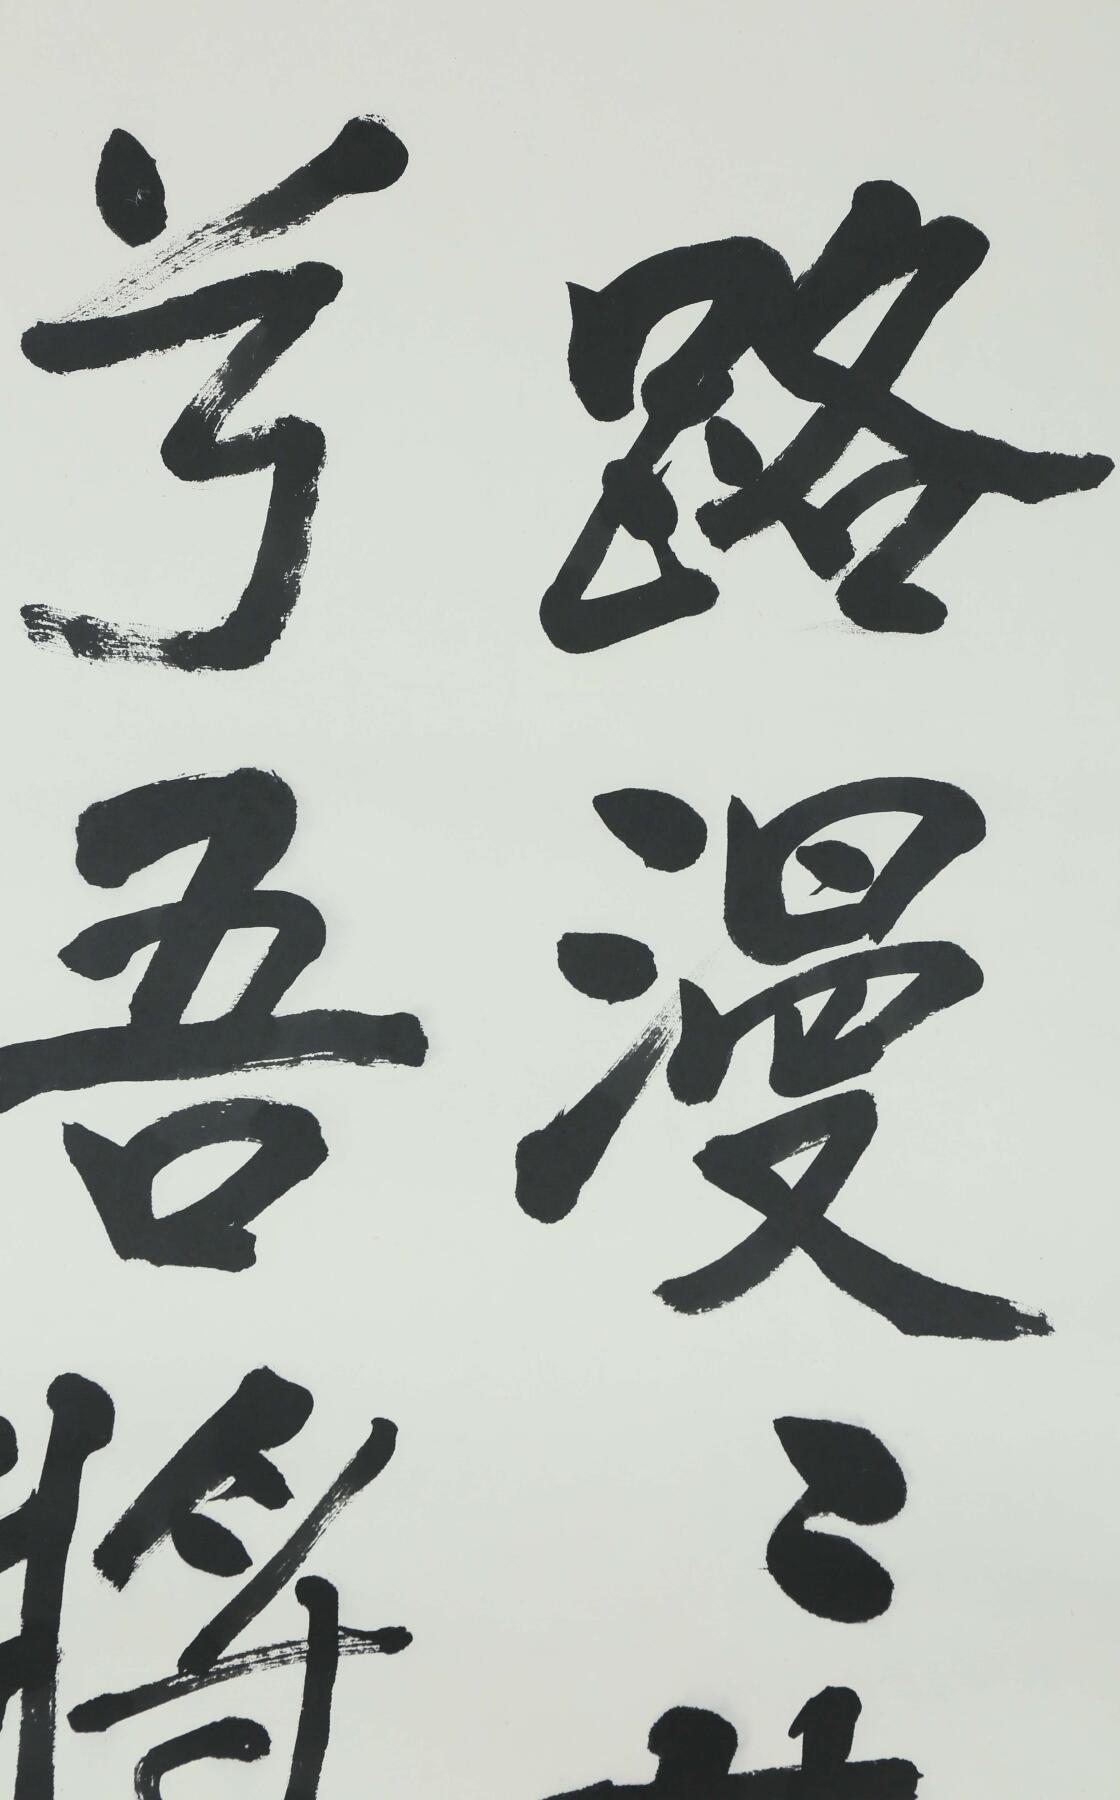 路漫〻
兮吾將